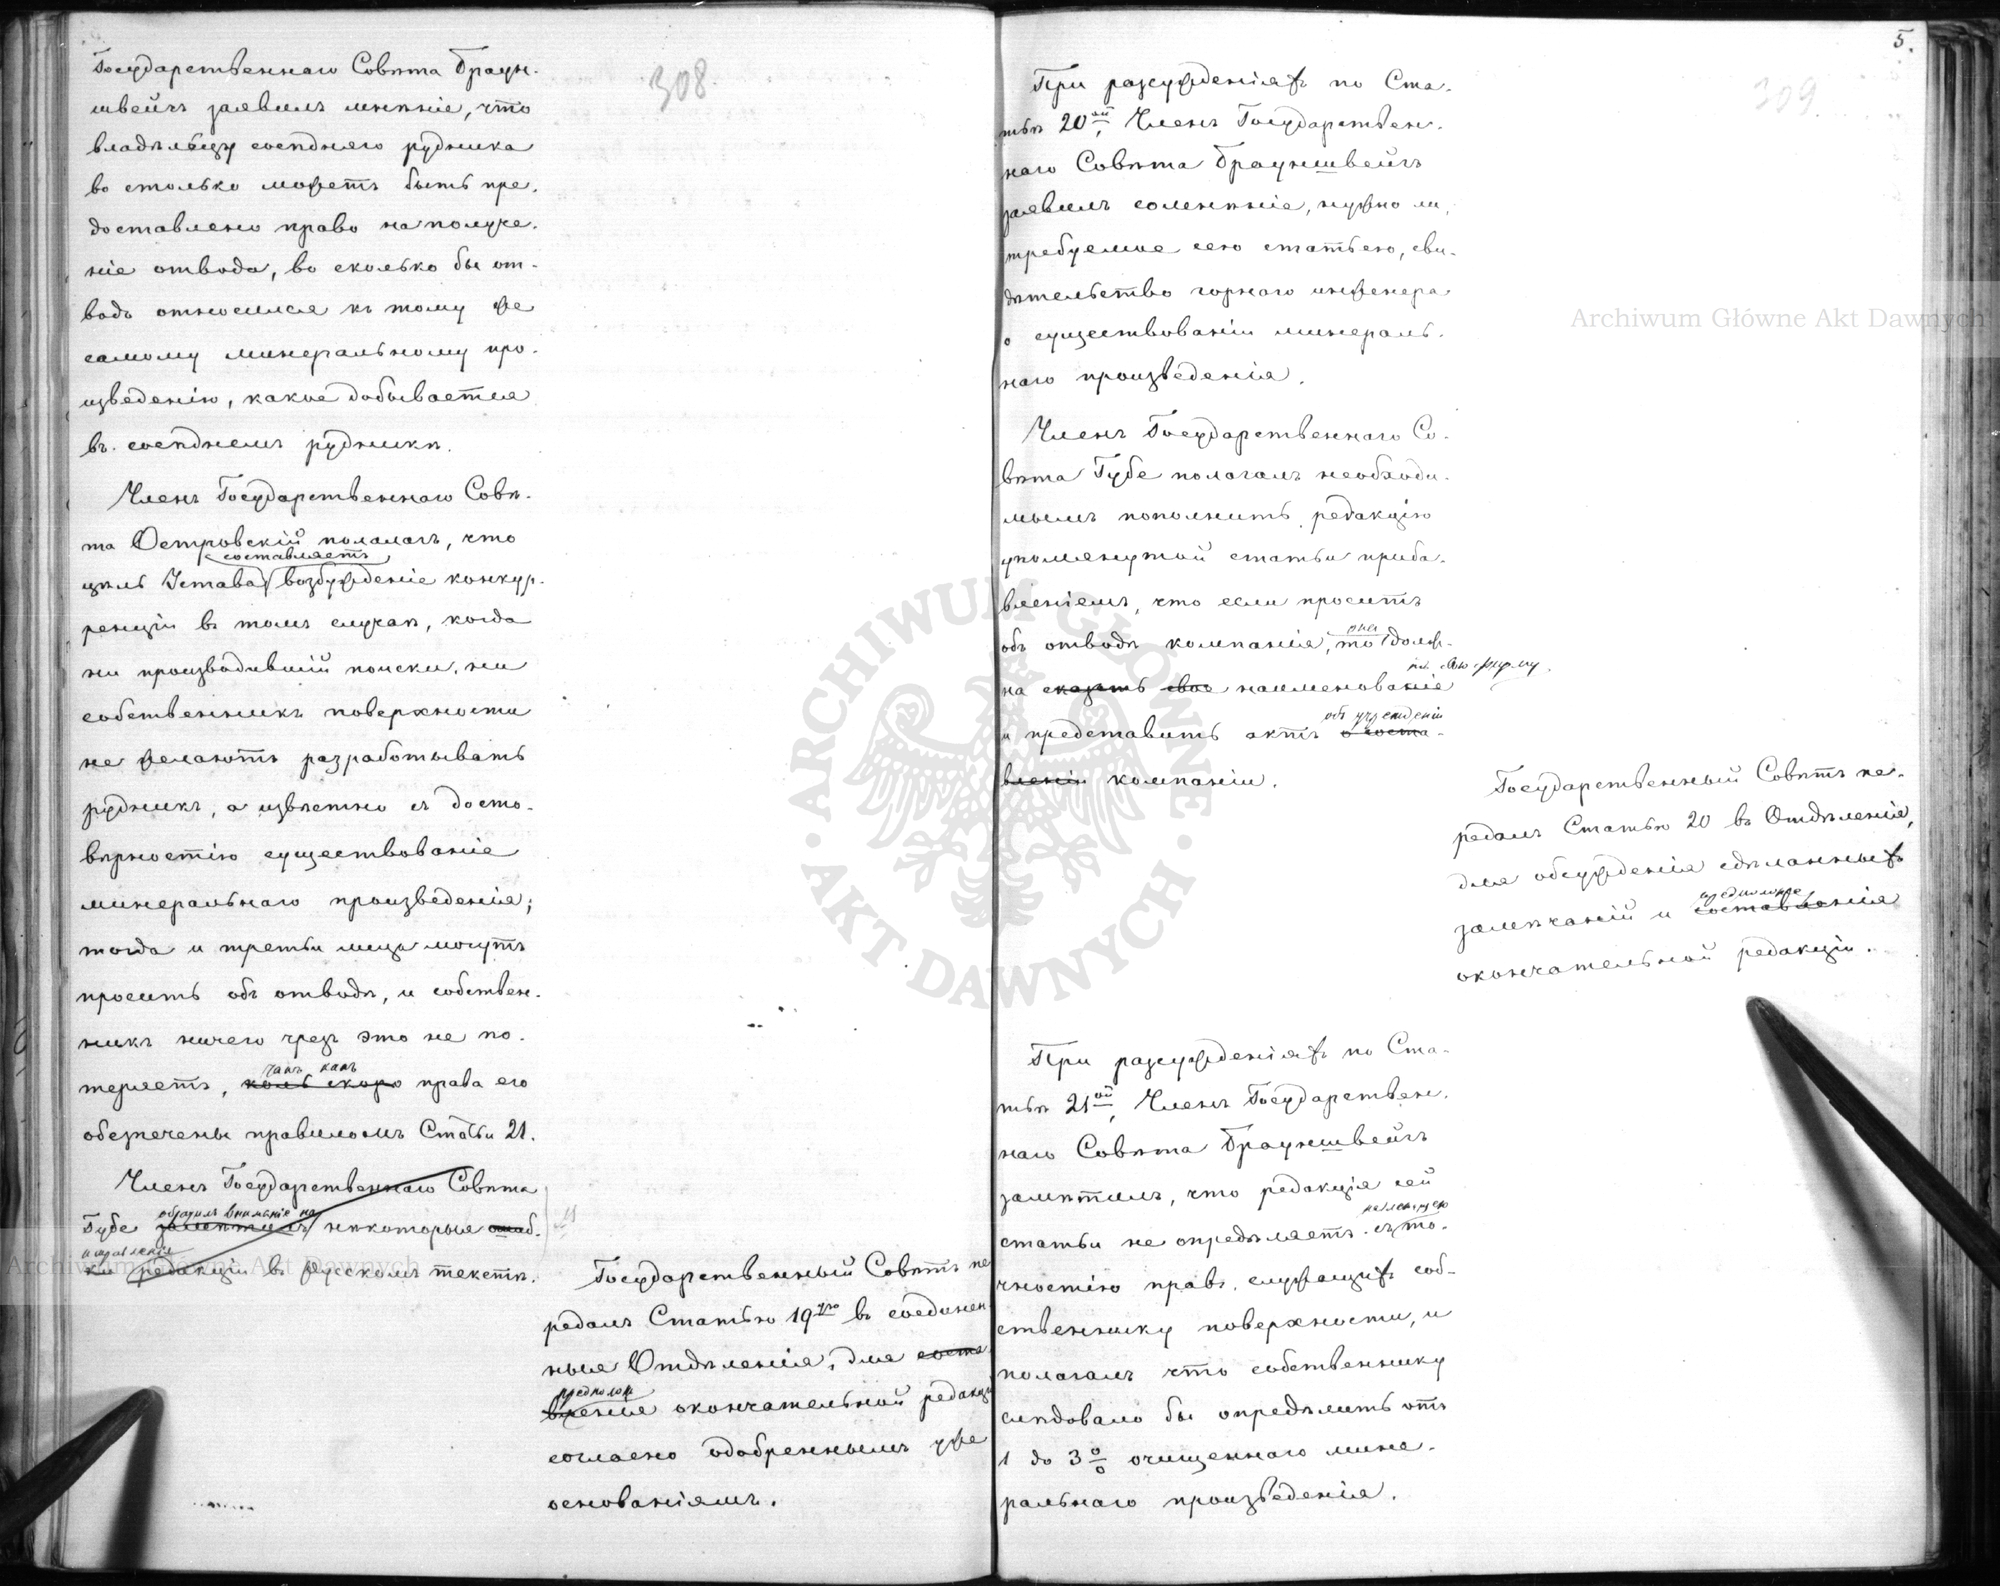 308.
Государственнаго Совѣта Браун-
швейгъ заявилъ мнѣніе, что
владѣльцу сосѣдняго рудника
во столько можетъ быть пре-
доставлено право на получе-
ніе отвода, во сколько бы от-
водъ относился къ тому же
самому минеральному про-
изведенію, какое добывается
въ сосѣднемъ рудникѣ.
Членъ Государственнаго Совѣ-
та Островскій полагалъ, что
составляетъ
цѣль Устава возбужденіе конкур-
ренціи въ томъ случаѣ, когда
ни производившій поиски, ни
собственникъ поверхности
не желаютъ разработывать
рудникъ, а извѣстно съ досто-
вѣрностію существованіе
минеральнаго произведенія;
тогда и третьи лица могутъ
просить объ отводѣ, и собствен-
никъ ничего чрезъ это не по-
такъ какъ
теряетъ, коль скоро права его
обезпечены правиломъ Статьи 21.
Членъ Государственнаго Совѣта
обратилъ вниманіе на
Губе замѣтилъ нѣкоторые ошиб-
ки редакціи въ Русскомъ текстѣ.
Государственный Совѣтъ пе
редалъ Статью 19ую въ соединен
ныя Отдѣленія, для соста
предполож
вленія окончательной редакці
согласно одобреннымъ уже
основаніямъ.
5.
309
При разсужденіяхъ по Ста-
тьѣ 20ой, Членъ Государствен-
наго Совѣта Брауншвейгъ
заявилъ сомнѣніе, нужно ли,
требуемое сею статьею, сви-
дѣтельство горнаго инженера
о существованіи минераль-
наго произведенія.
Членъ Государственнаго Со-
вѣта Губе полагалъ необходи-
мымъ пополнить редакцію
упомянутой статьи приба-
вленіемъ, что если проситъ
она
объ отводѣ компанія, то долж-
свою фирму
на сказать свое наименованіе
объ учрежденіи
и представить актъ о соста-
вленіи компаніи.
Государственный Совѣтъ пе-
редалъ Статью 20 въ Отдѣленія,
для обсужденія сдѣланныхъ
предположе
замѣчаній и составленія
окончательной редакціи.
При разсужденіяхъ по Ста-
тьѣ 21ой, Членъ Государствен-
наго Совѣта Брауншвейгъ
замѣтилъ, что редакція сей
статьи не опредѣляетъ съ то-
чностію правъ, служащихъ соб-
ственнику поверхности, и
полагалъ что собственнику
слѣдовало бы опредѣлить отъ
1 до 3% очищеннаго мине-
ральнаго произведенія.
Archiwum Główne Akt Dawnych
Archiwum Główne Akt Dawnych
ARCHIWUM GŁÓWNE · AKT DAWNYCH ·